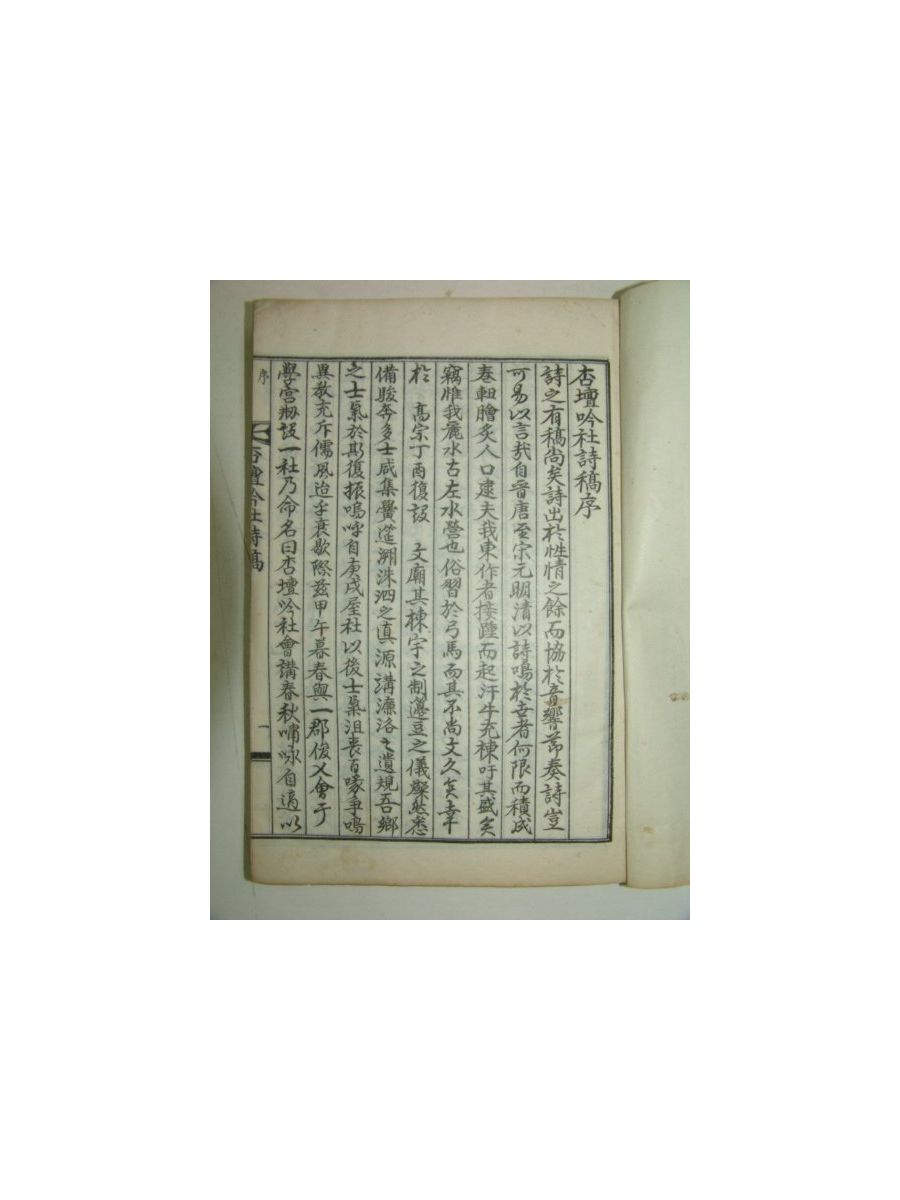 杏壇吟社詩稿序
詩之有稿尚矣詩出於性情之餘而協於音響節奏詩豈
可易以言哉自晉唐至宗元明清以詩鳴於世者何限而積成
卷軸膾炙人口逮夫我東作者接踵而起汗牛充棟吁其盛矣
竊惟我麗水古左水營也俗習於弓馬而其不尚文久矣幸
於 高宗丁酉復設 文廟其棟宇之制籩豆之儀燦然悉
備駿奔多士咸集黌遙溯洙泗之眞源講濂洛之遺規吾鄉
之士氣於斯復振嗚呼自庚戌屋社以後士氣沮喪百喙爭鳴
異敎充斥儒風迨乎衰歇際玆甲午暮春與一郡俊乂會于
學宮刱設一社乃命名曰杏壇吟社會講春秋嘯咏自適以
序
杏壇吟社詩稿
一